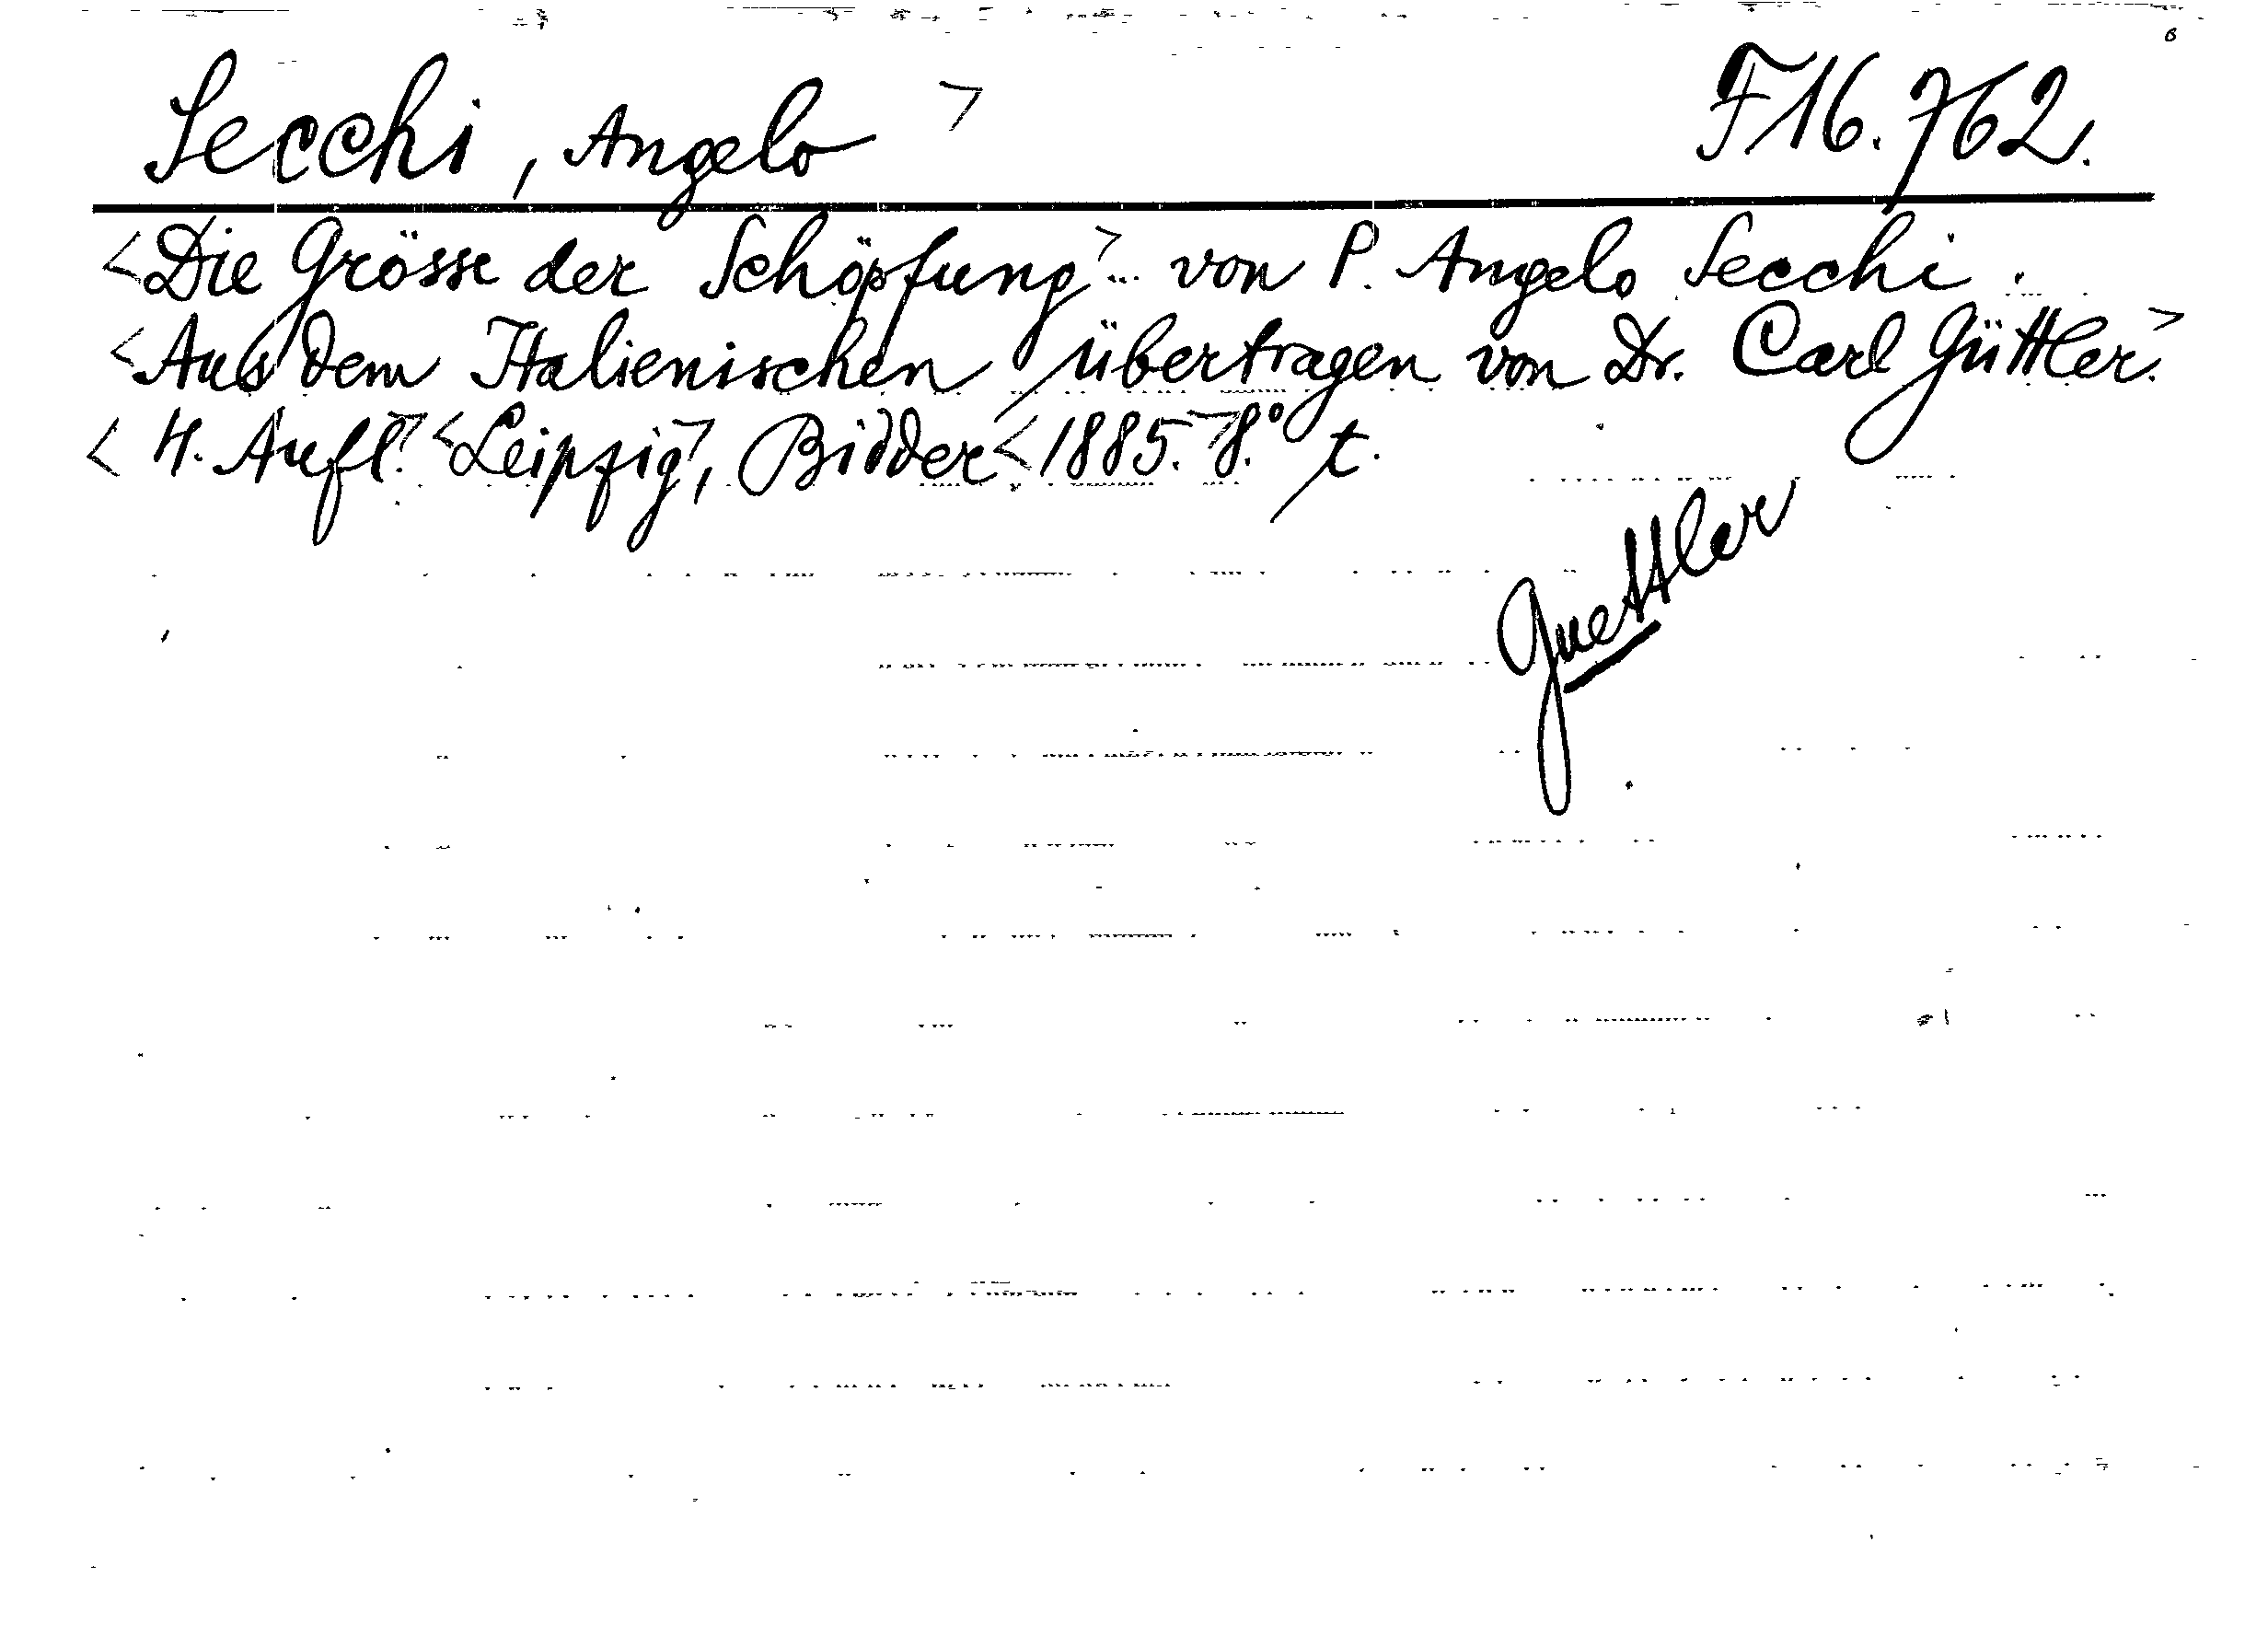 Secchi, Angelo > F16.762.
<Die Grösse der Schöpfung> ... von P. Angelo Secchi.
<Aus dem Italienischen übertragen von Dr. Carl Güttler.>
<4. Aufl.> <Leipzig>, Bidder <1885.> 8.° t.
Guettler